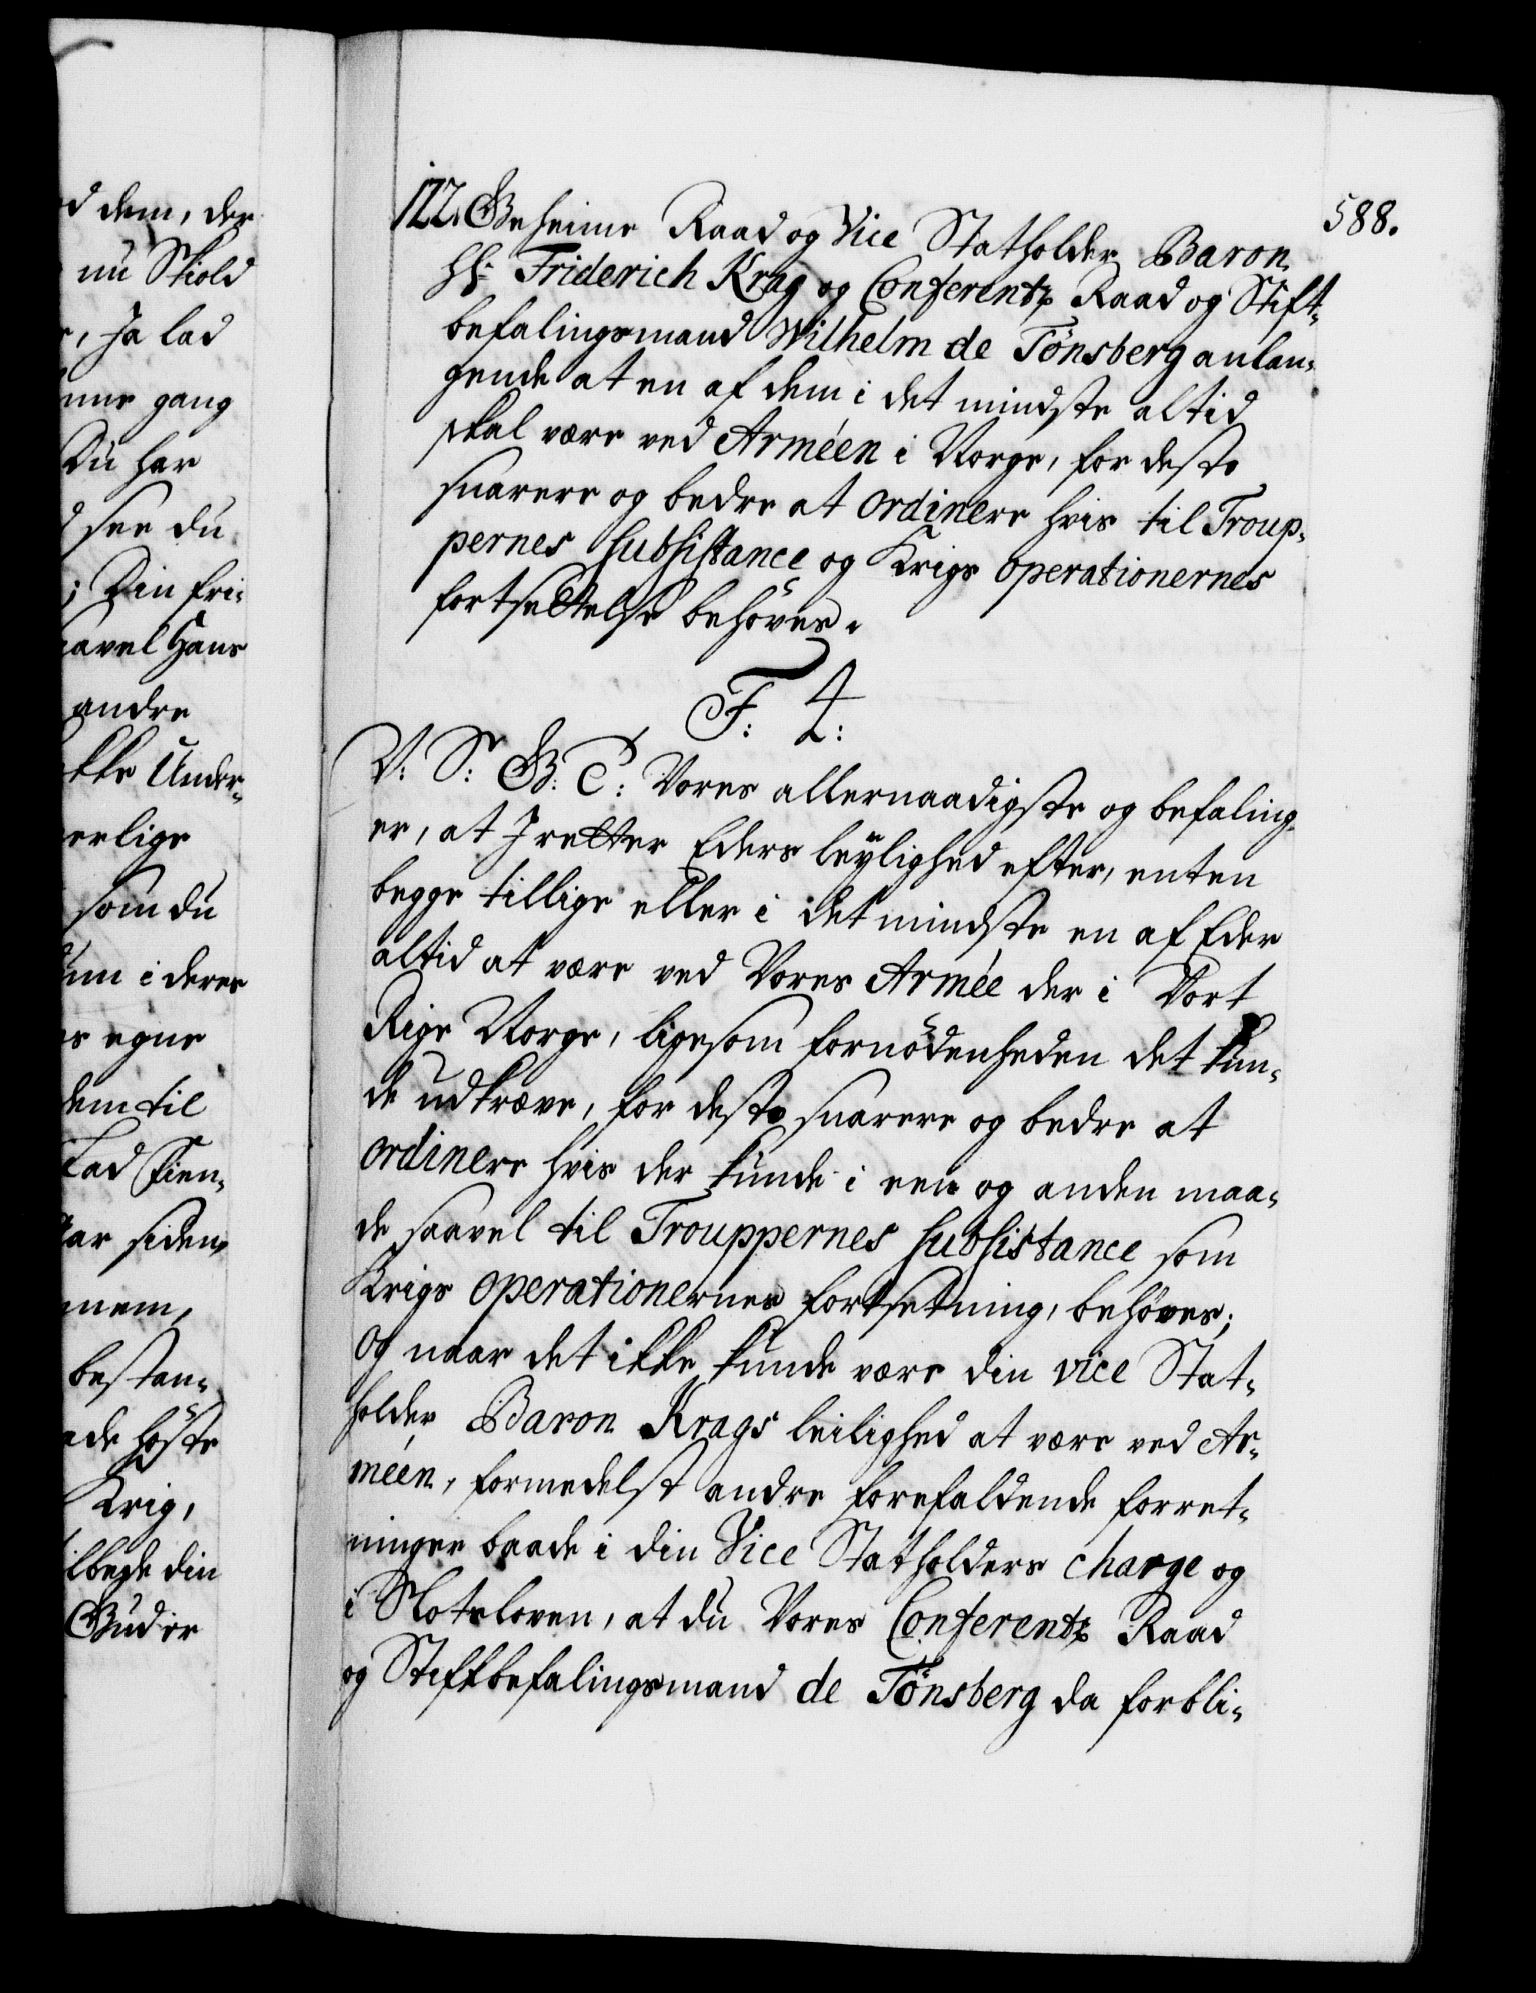 d dem, der
nu Skiold
r, Ja lad
nne gang
Du har
see du
; Din fri-
saavel Hans
andre
ikke Under-
erlige
som du
dem i deres
es egne
dem til
Lad Fien-
siden
nem,
bestan-
ade höste
Krig,
tilbede din
Gud er
588.
122. Geheime Raad og Vice Statholder Baron
Hr: Friderich Krag og Conferentz Raad og Stift-
befalingsmand Wilhelm de Tönsberg anlan-
gende at en af dem i det mindste altid
skal være ved Arméen i Norge, for desto
snarere og bedre at ordinere hvis til Troup-
pernes subsistance og Krigs operationernes
fortsettelse behöves.
F: 4:
V: S: G: T: Vores allernaadigste og befaling
er, at I retter Eders leÿlighed efter, enten
begge tillige eller i det mindste en af Eder
altid at være ved Vores Armée der i Vort
Rige Norge, ligesom fornödenheden det kun-
de udkræve, for desto snarere og bedre at
ordinere hvis der kunde i een og anden maa-
de saavel til Trouppernes subsistance som
Krigs operationernes fortsetning, behöves;
Og naar det ikke kunde være din vice Stat-
holder Baron Krags leilighed at være ved Ar-
méen, formedelst andre forefaldende forret-
ninger baade i din Vice Statholders charge og
i Slotsloven, at du Vores Conferentz Raad
og Stiftbefalingsmand de Tönsberg da forbli-